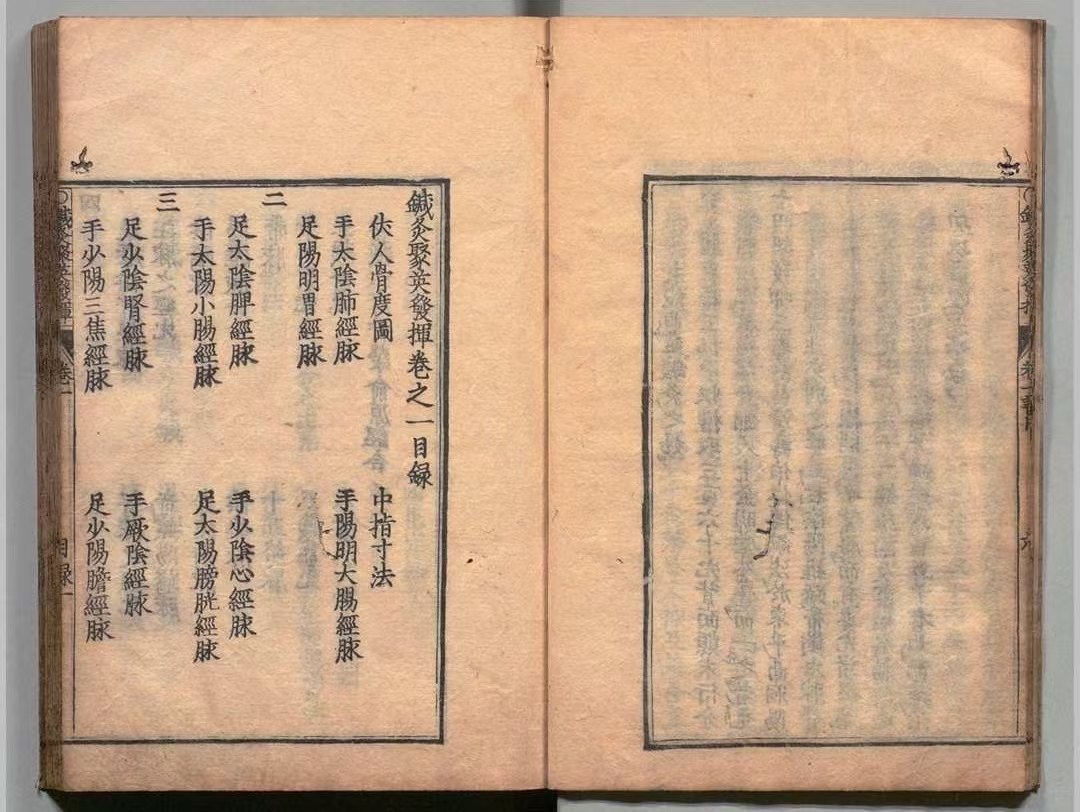 鍼灸聚英發揮卷之一目録
伏人骨度圖 中指寸法
手太陰肺經脉 手陽明大腸經脉
足陽明胃經脉
二
足太陰脾經脉 手少陰心經脉
手太陽小腸經脉 足太陽膀胱經脉
三
足少陰腎經脉 手厥陰經脉
手少陽三焦經脉 足少陽膽經脉
鍼灸聚英發揮 卷一 目録 一